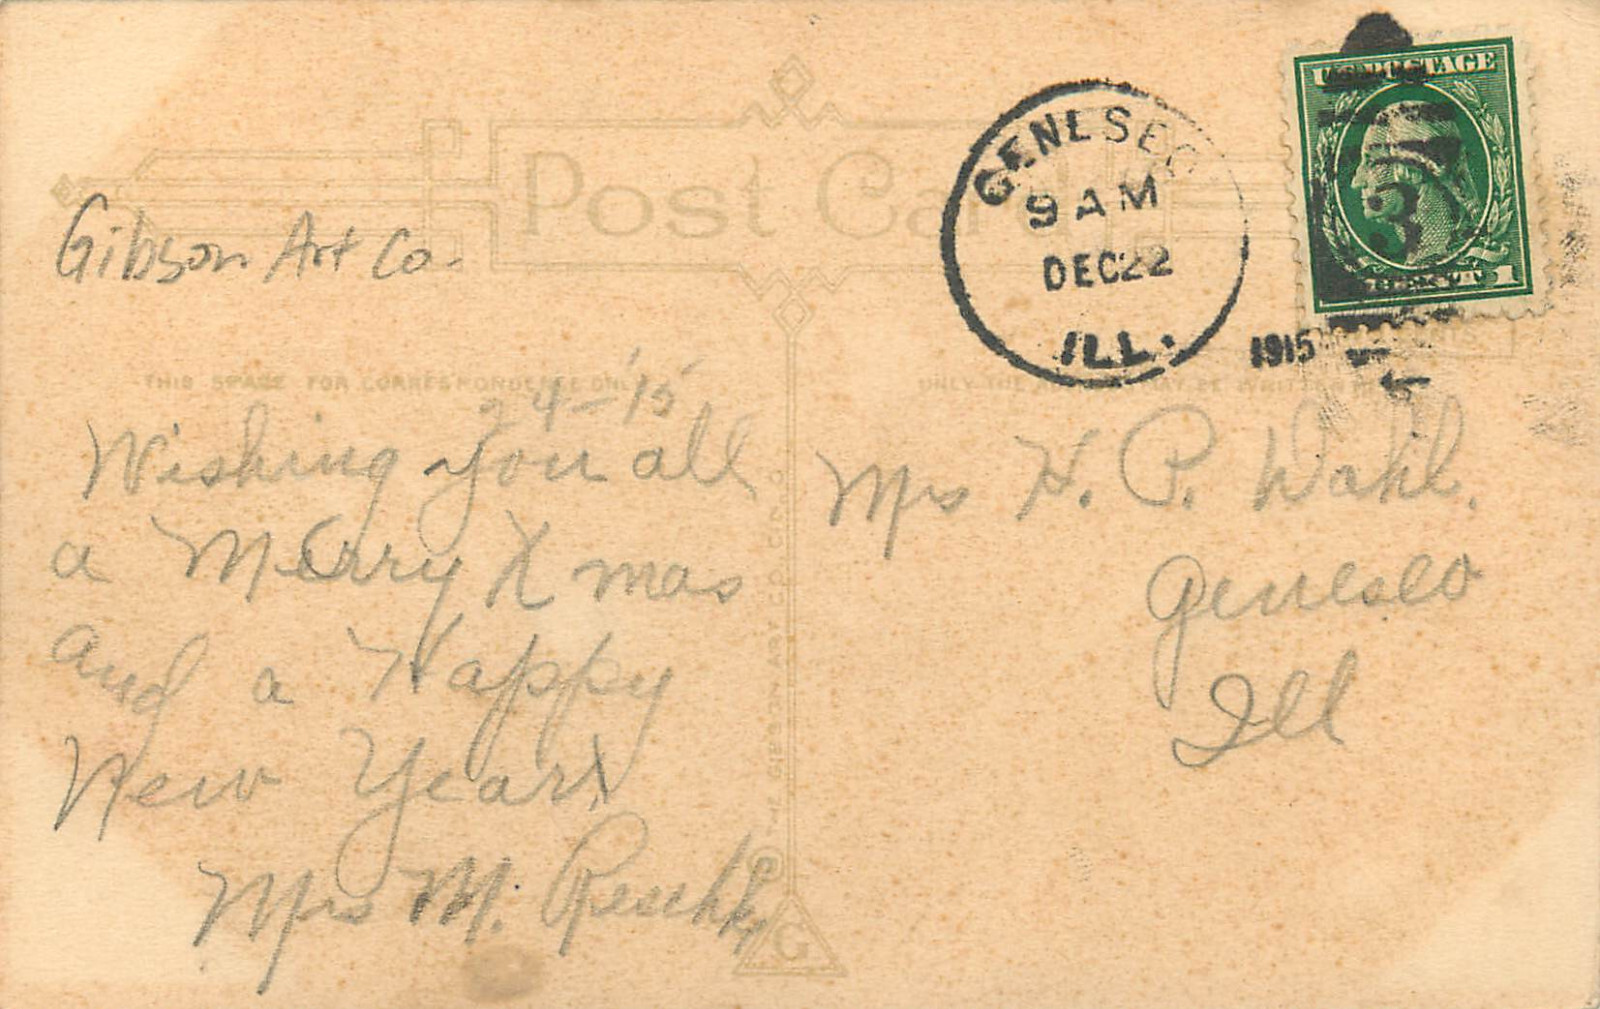 Post Card
Gibson Art Co.
GENESEO
9 AM
DEC 22
ILL.
1915
U.S. POSTAGE
3
1
THIS SPACE FOR CORRESPONDENCE ONLY
ONLY THE ADDRESS MAY BE WRITTEN HERE
24-'15
Wishing you all
a Merry Xmas
and a Happy
New Year
Mrs M.
Mrs H. P. Wahl.
Geneseo
Ill
THE GIBSON ART CO.
G